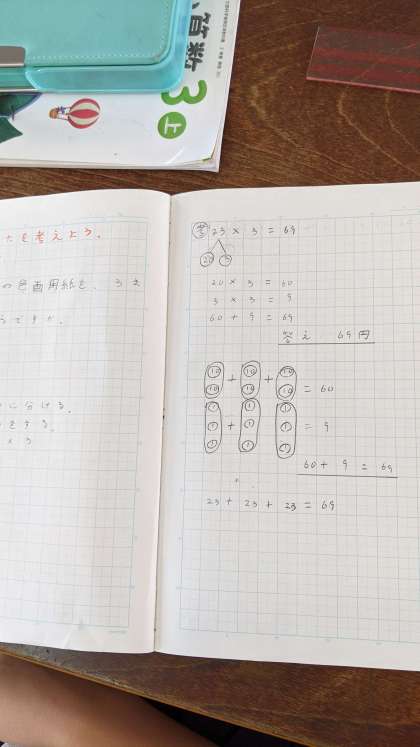 算数
3上
たを考えよう。
の色画用紙を、3ま
うですか。
に分ける。
をする。
×3
考 23 × 3 = 69
20 3
20 × 3 = 60
3 × 3 = 9
60 + 9 = 69
答え 69円
10 10 10
10 + 10 + 10 = 60
1 1 1
1 + 1 1 = 9
1 1 1
60 + 9 = 69
23 + 23 + 23 = 69